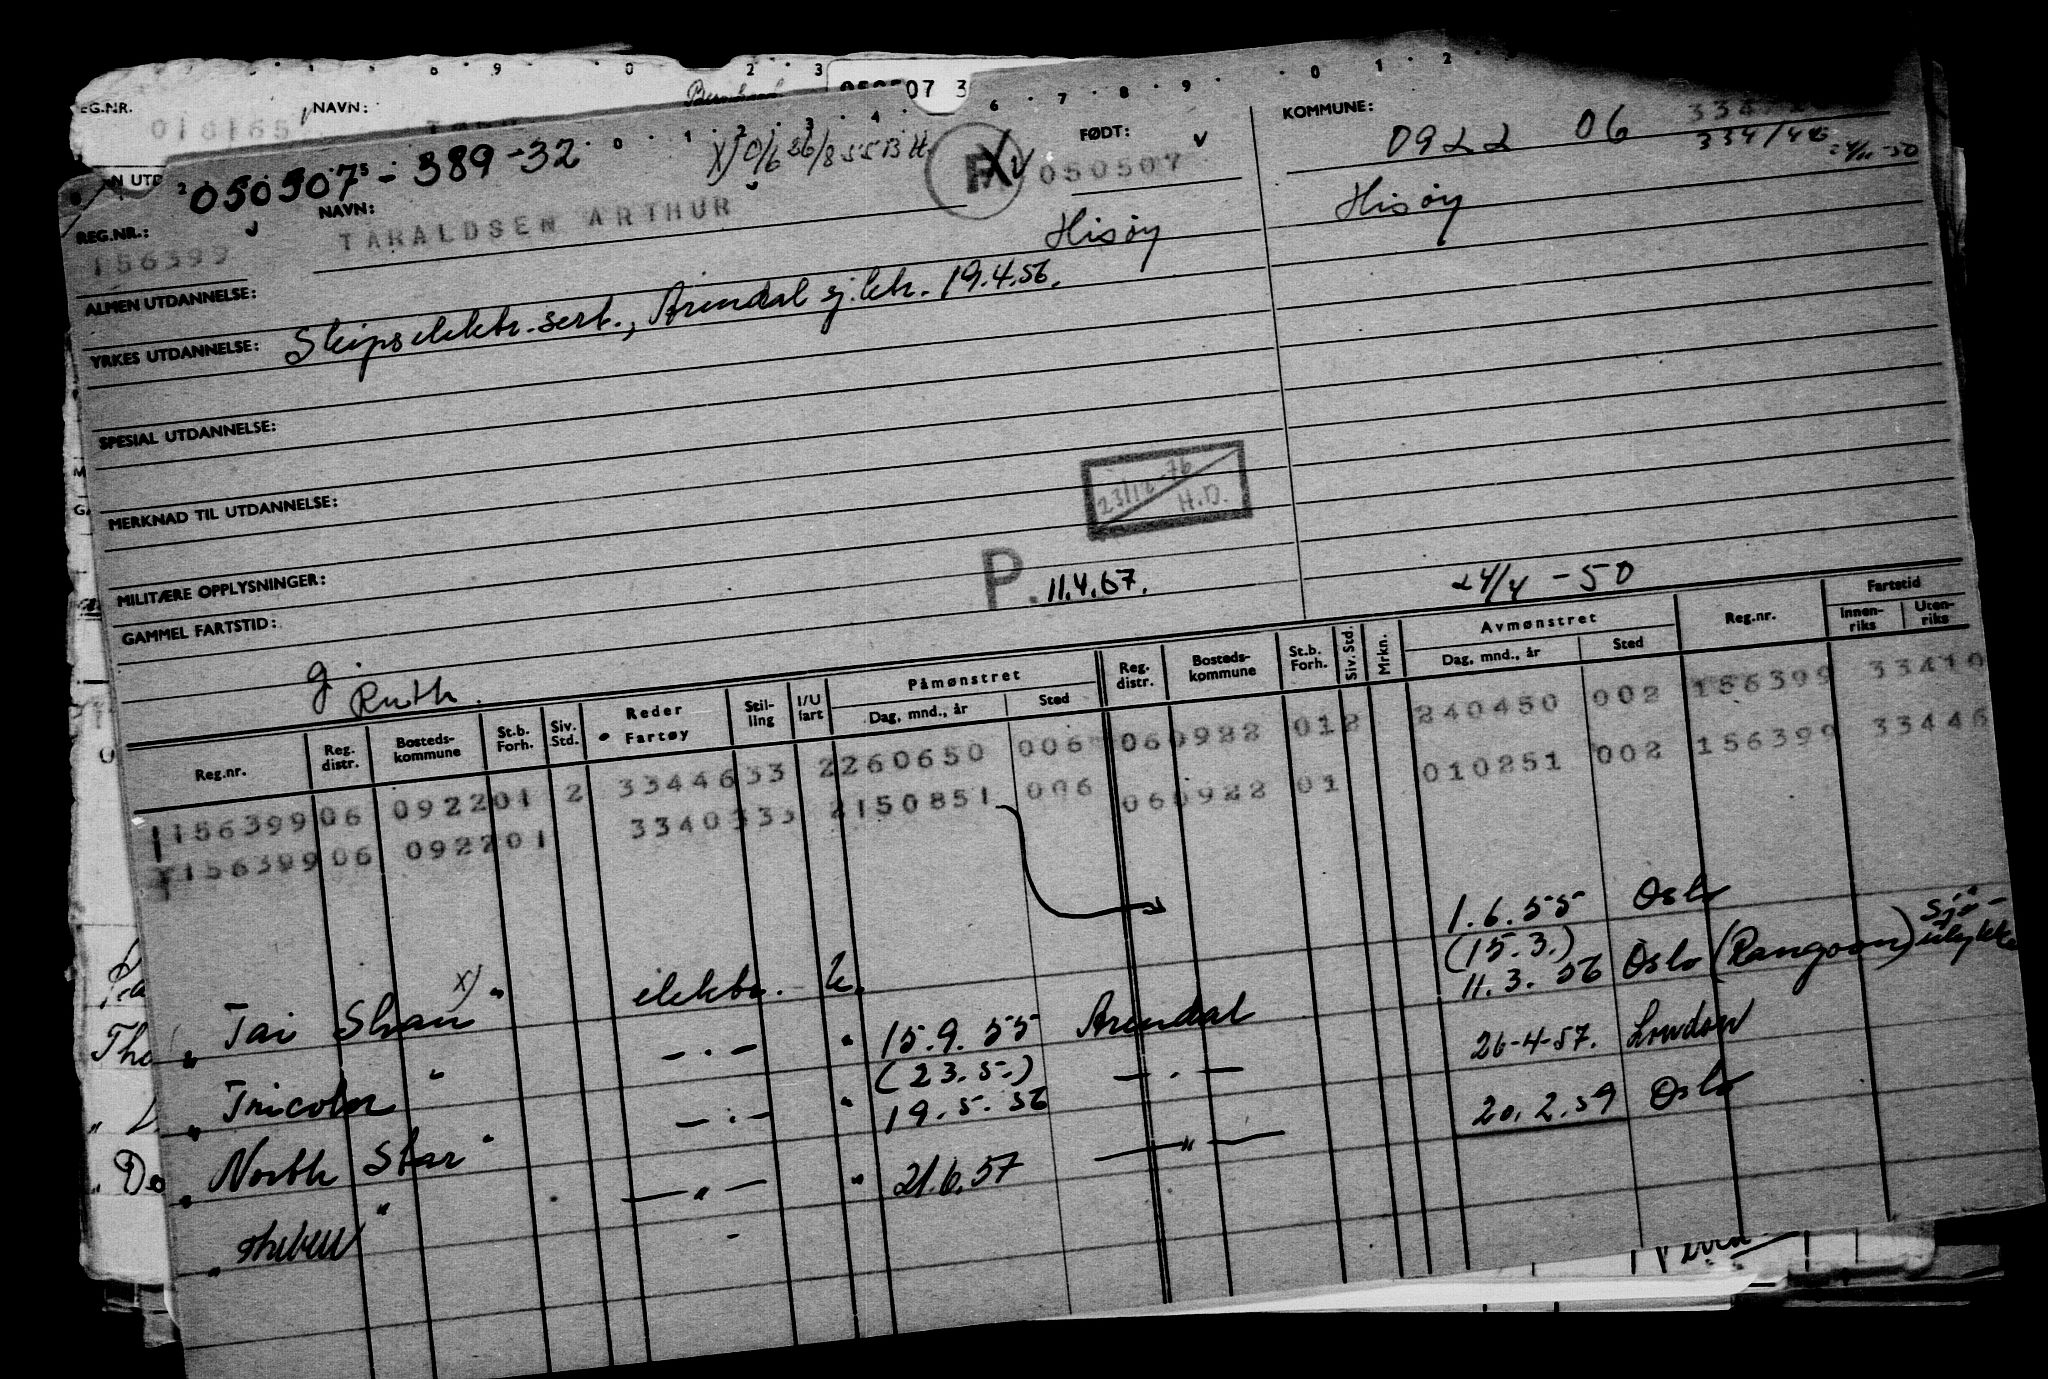 6 9 0 2 3
EG.NR.
NAVN:
016165
07 3
6 7 8 9 0 1 2
0 1 2 3 4
050507 - 389 - 32
FØDT:
KOMMUNE:
050507
0922 06
334
REG.NR.:
NAVN:
156399
TARALDSEN ARTHUR
Hisøy
Hisøy
ALMEN UTDANNELSE:
YRKES UTDANNELSE: Skipselektr.sert., Arendal sj.ktr. 19.4.56.
SPESIAL UTDANNELSE:
MERKNAD TIL UTDANNELSE:
23/12-76
H.D.
MILITÆRE OPPLYSNINGER:
P. 11.4.67.
24/4 - 50
GAMMEL FARTSTID:
g. Ruth.
Reg.nr. Reg. distr. Bosteds-kommune St.b. Forh. Siv. Std. Reder Fartøy Stil-ling I/U fart Påmønstret Dag, mnd., år Sted Reg. distr. Bosteds-kommune St.b. Forh. Siv. Std. Mrkn. Avmønstret Dag, mnd., år Sted Reg.nr. Fartstid Innen-riks Uten-riks
156399 06 0922 01 2 33446 33 2 260650 006 06 0922 01 2 240450 002 156399 33410
156399 06 0922 01 33403 33 2 150851 006 06 0922 01 010251 002 156399 33446
1.6.55 Oslo
" Tai Shan x) " elektr. u. (15.3.)
11.3.56 Oslo (Rangoon) sjø-ulykke
" Tricolor " — . — " 15.9.55 Arendal 26-4-57. London
(23.5.)
" North Star " — . — " 19.5.56 — . — 20.2.59 Oslo
" Theben " — " — " 21.6.57 — " —